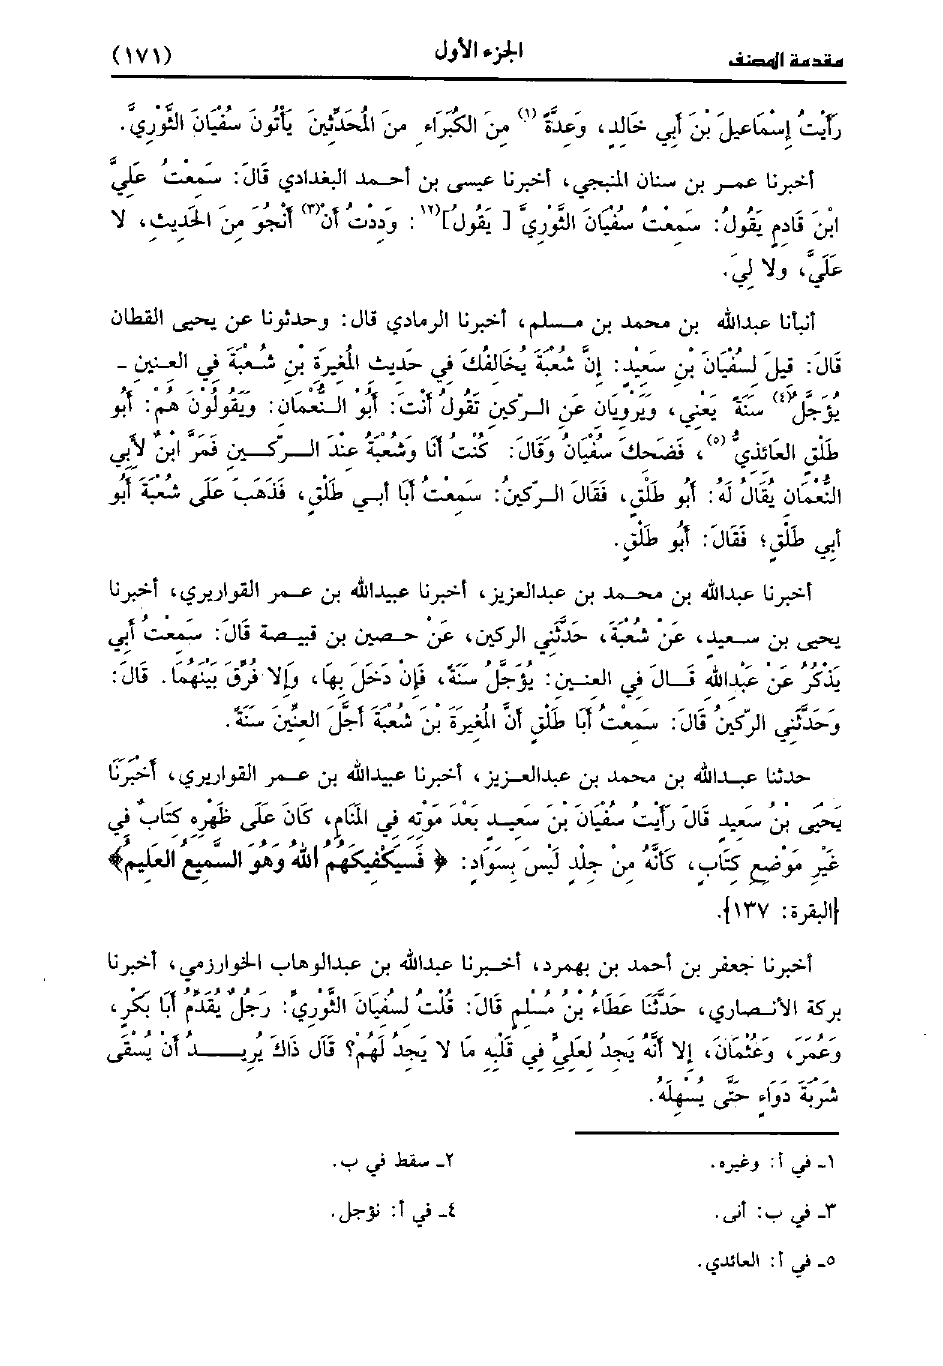 مقدمة المصنف الجزء الأول (١٧١)
رَأَيْتُ إِسْمَاعِيلَ بْنَ أَبِي خَالِدٍ، وَعِدَّةً (١) مِنَ الكُبَرَاءِ مِنَ الْمُحَدِّثِينَ يَأْتُونَ سُفْيَانَ الثَّوْرِيَّ.
أخبرنا عمر بن سنان المنبجي، أخبرنا عيسى بن أحمد البغدادي قَالَ: سَمِعْتُ عَلِيَّ
ابْنَ قَادِمٍ يَقُولُ: سَمِعْتُ سُفْيَانَ الثَّوْرِيَّ [ يَقُولُ](٢): وَدِدْتُ أَنْ(٣) أَنْجُوَ مِنَ الْحَدِيثِ، لا
عَلَيَّ، ولا لِيَ.
أنبأنا عبدالله بن محمد بن مسلم، أخبرنا الرمادي قال: وحدثونا عن يحيى القطان
قَالَ: قِيلَ لِسُفْيَانَ بْنِ سَعِيدٍ: إِنَّ شُعْبَةَ يُخَالِفُكَ فِي حَدِيثِ الْمُغِيرَةِ بْنِ شُعْبَةَ فِي العنين ـ
يُؤَجَّلُ(٤) سَنَةً يَعْنِي، وَيَرْوِيَان عَنِ الركين تَقُولُ أَنْتَ: أَبُو النُّعْمَانِ: وَيَقُولُونَ هُمْ: أَبُو
طَلْقٍ العَائِذِيُّ(٥)، فَضَحِكَ سُفْيَانُ وَقَالَ: كُنْتُ أَنَا وَشُعْبَةُ عِنْدَ الركين فَمَرَّ ابْنٌ لأَبِي
النُّعْمَانِ يُقَالُ لَهُ: أَبُو طَلْقٍ، فَقَالَ الركينُ: سَمِعْتُ أَبَا أبي طَلْقٍ، فَذَهَبَ عَلَى شُعْبَةَ أَبُو
أَبِي طَلْقٍ؛ فَقَالَ: أَبُو طَلْقٍ.
أخبرنا عبدالله بن محمد بن عبدالعزيز، أخبرنا عبيدالله بن عمر القواريري، أخبرنا
يحيى بن سعيد، عَنْ شُعْبَةَ، حَدَّثَنِي الركين، عَنْ حصين بن قبيصة قَالَ: سَمِعْتُ أَبِي
يَذْكُرُ عَنْ عَبْدِاللهِ قَالَ فِي العنين: يُؤَجَّلُ سَنَةً، فَإِنْ دَخَلَ بِهَا، وَإِلا فُرِّقَ بَيْنَهُمَا. قَالَ:
وَحَدَّثَنِي الركينُ قَالَ: سَمِعْتُ أَبَا طَلْقٍ أَنَّ الْمُغِيرَةَ بْنَ شُعْبَةَ أَجَّلَ العِنِّينَ سَنَةً.
حدثنا عبدالله بن محمد بن عبدالعزيز، أخبرنا عبيدالله بن عمر القواريري، أَخْبَرَنَا
يَحْيَى بْنُ سَعِيدٍ قَالَ رَأَيْتُ سُفْيَانَ بْنَ سَعِيدٍ بَعْدَ مَوْتِهِ فِي الْمَنَامِ، كَانَ عَلَى ظَهْرِهِ كِتَابٌ فِي
غَيْرِ مَوْضِعِ كِتَابٍ، كَأَنَّهُ مِنْ جِلْدٍ لَيْسَ بِسَوَادٍ: ﴿ فَسَيَكْفِيكَهُمُ اللهُ وَهُوَ السَّمِيعُ العَلِيمُ﴾
{البقرة: ١٣٧}.
أخبرنا جعفر بن أحمد بن بهمرد، أخبرنا عبدالله بن عبدالوهاب الخوارزمي، أخبرنا
بركة الأنصاري، حَدَّثَنَا عَطَاءُ بْنُ مُسْلِمٍ قَالَ: قُلْتُ لِسُفْيَانَ الثَّوْرِيِّ: رَجُلٌ يُقَدِّمُ أَبَا بَكْرٍ،
وَعُمَرَ، وَعُثْمَانَ، إِلا أَنَّهُ يَجِدُ لِعَلِيٍّ فِي قَلْبِهِ مَا لا يَجِدُ لَهُمْ؟ قَالَ ذَاكَ يُرِيدُ أَنْ يُسْقَى
شَرْبَةَ دَوَاءٍ حَتَّى يُسْهِلَهُ.
١ـ في أ: وغيره. ٢ـ سقط في ب.
٣ـ في ب: أنى. ٤ـ في أ: نؤجل.
٥ـ في أ: العائدي.